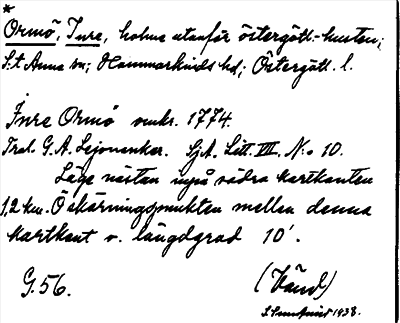 *
Ormö, Inre, holme utanför östergötl.-kusten;
S:t Anna sn; Hammarkinds hd; Östergötl. l.
Inre Ormö omkr. 1774.
Trol. G. A. Lejonankar. SjA. Litt. VII. N:o 10.
Läge nästan invid södra kartkanten
1,2 km. Ö skärningspunkten mellan denna
kartkant o. längdgrad 10'.
G.56. (Vänd)
1938.